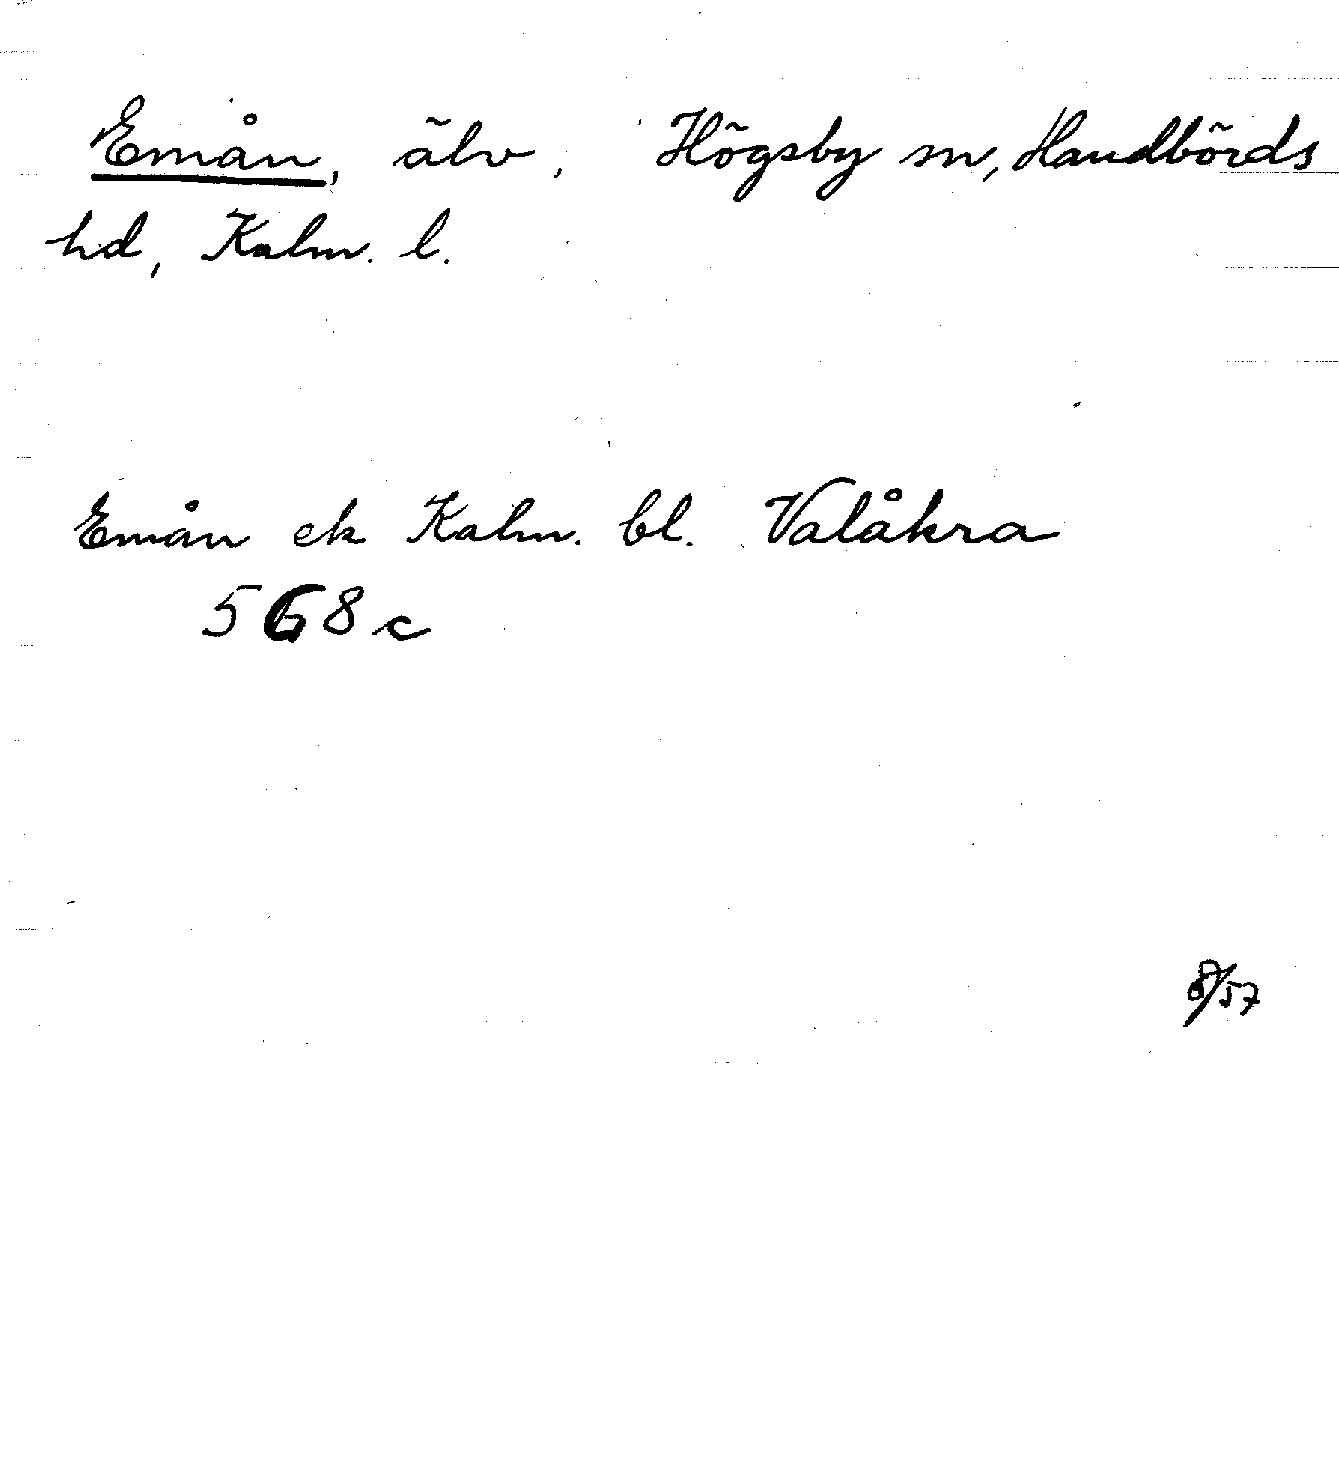 Emån, älv, Högsby sn, Handbörds
hd, Kalm. l.
Emån ek Kalm. bl. Valåkra
568c
8/57